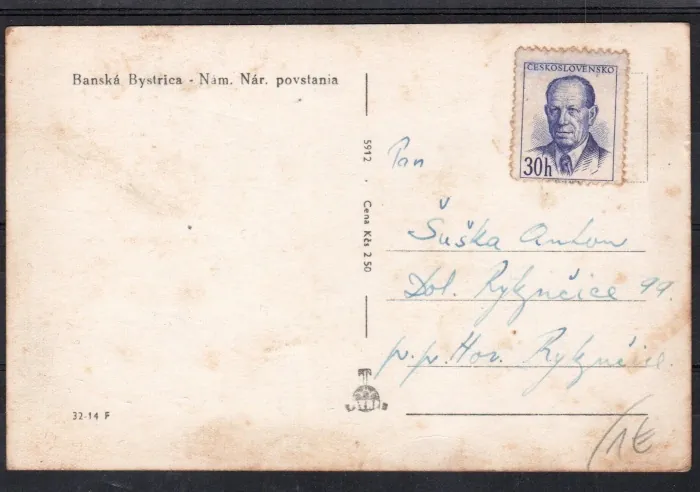 Banská Bystrica - Nám. Nár. povstania
ČESKOSLOVENSKO
30h
5912 · Cena Kčs 2.50
Pan
Šuška Anton
Dol. Rykynčice 99.
p.p. Hor. Rykynčice
32-14 F
1€